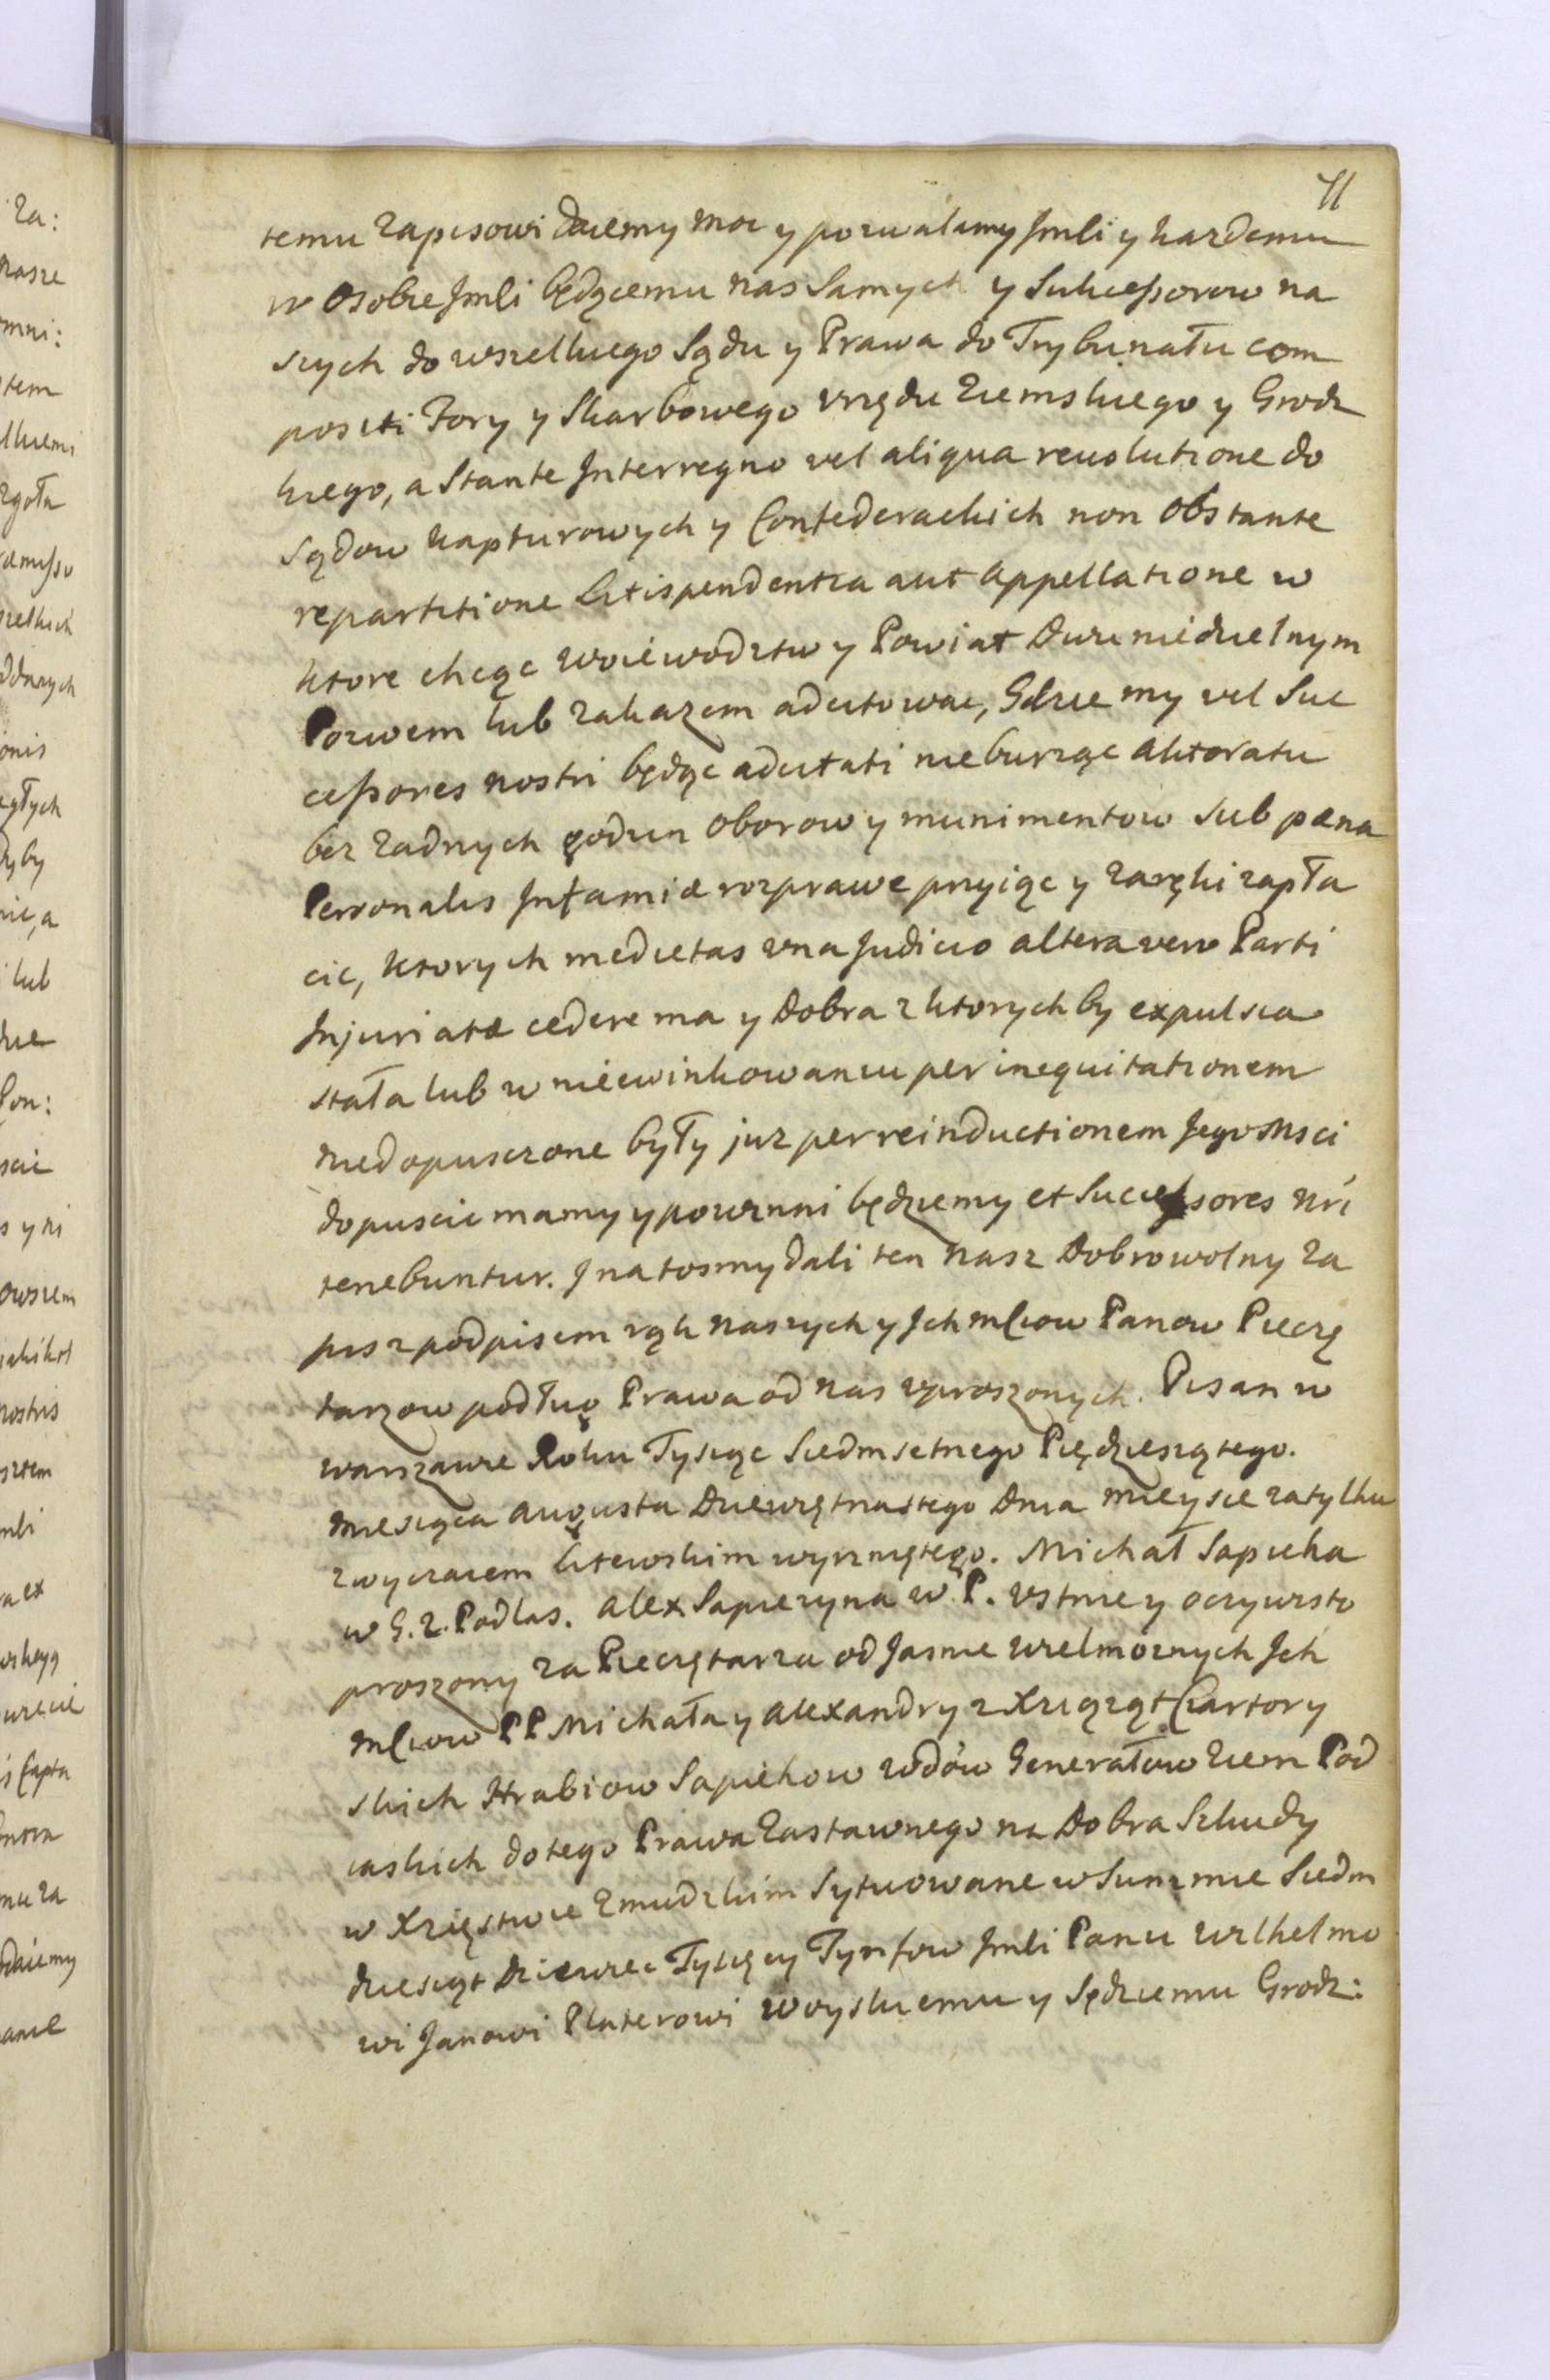 71
temu Zapisowi daiemy moc y pozwalamy Jmći y kazdemu
w Osobie Jmći będącemu nas Samych y Sukcessorow na
szych do wszelkiego Sądu y Prawa do Trybunału com
positi Fory y Skarbowego vrzędu Ziemskiego y Grodz
kiego, a Stante Interregno vel aliqua reuolutione do
Sądow Kapturowych y Confederackich non Obstante
repartitione Litispendentia aut Appellatione w
ktore chcąc woiewodztwo y Powiat Dwuniedzielnym
Pozwem lub Zakazem adcitowac, Gdzie my vel Suc
cessores nostri będąc adcitati nieburząc Aktoratu
bez Zadnych godzin Oborow y munimentow Sub pæna
Personalis Infamiæ rozprawe przyiąc y Zaręki zapła
cic, ktorych medietas vna Judicio altera vero Parti
Injuriatæ cedere ma y Dobra z ktorych by expulsia
stała lub w niewinkowaniu per inequitationem
niedopuszczone były juz per reinductionem Jegomsci
dopuscic mamy y powinni będziemy et Successores nri
tenebuntur. J na tosmy dali ten nasz Dobrowolny Za
pis z podpisem rąk naszych y Jchmściow Panow Pieczę
tarzow podług Prawa od nas vproszonych. Pisan w
warszawie Roku Tysiąc Siedmsetnego Pięдziesiątego.
miesiąca augusta Dziewiętnastego Dnia mieysce zatylku
zwyczaiem Litewskim wyrzniętego. Michał Sapieha
w G. Z. Podlas. Alex Sapiezyna w. P. vstnie y oczywisto
proszony za Pieczętarza od Jasnie wielmoznych Jch
mściow PP Michała y Alexandry z Xziążąt Czartory
skich Hrabiow Sapiehow wdów Generałow Ziem Pod
laskich do tego Prawa Zastawnego na Dobra Szkudy
w Xzięstwie Zmudzkim sytuowane w Summie Siedm
dziesiąt Dziewiec Tysięcy Tynfow Jmći Panu wilhelmo
wi Janowi Platerowi woyskiemu y Sędziemu Grodz: